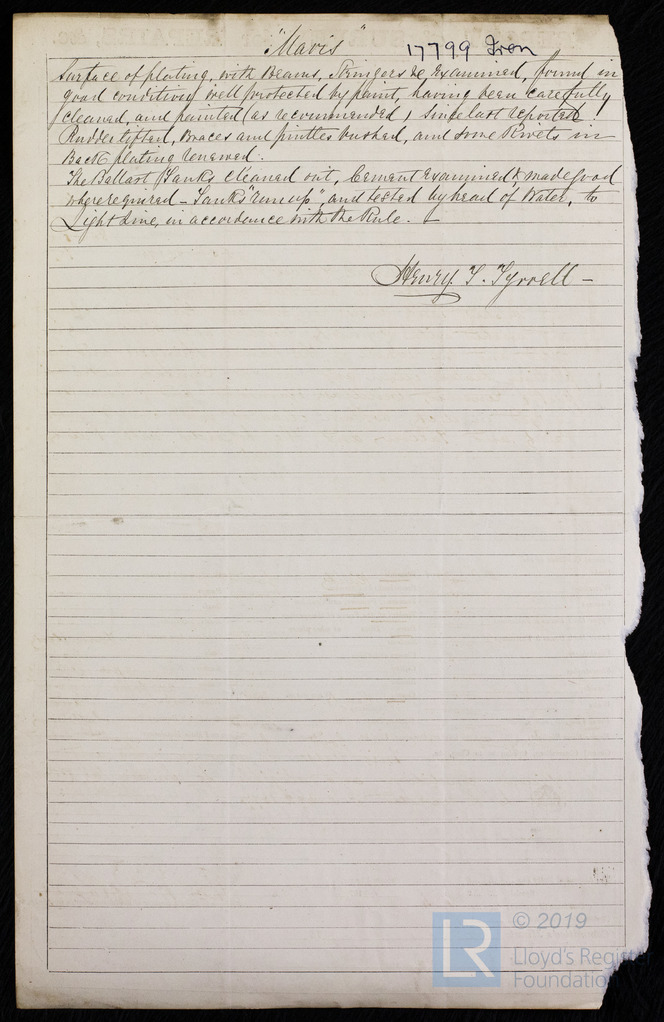 "Mavis" 17799 Iron
Surface of plating, with Beams, Stringers &c Examined, found in
good condition, well protected by paint, having been carefully
cleaned, and painted (as recommended) since last reported!
Rudder lifted, Braces and pintles bushed, and some Rivets in
Back plating renewed.
The Ballast Tanks cleaned out, Cement Examined & made good
where required - Tanks "run up", and tested by head of Water, to
Light Line, in accordance with the Rule.
Henry T. Tyrrell -
LR © 2019
Lloyd's Register
Foundation